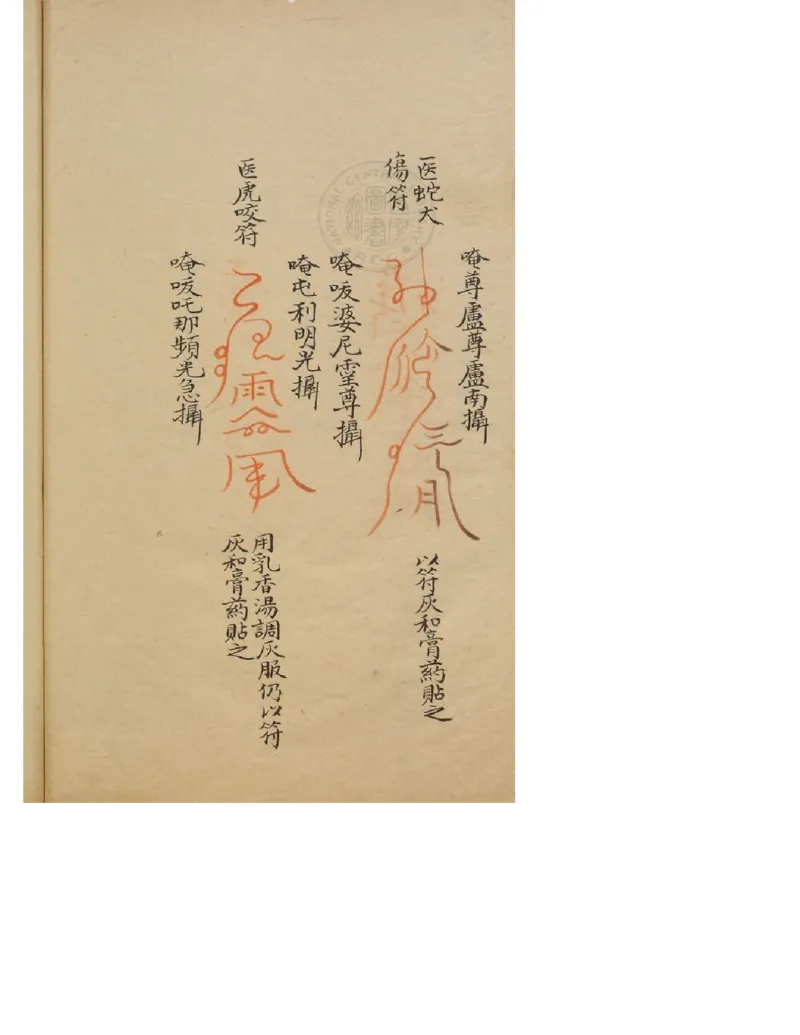 唵尊盧尊盧南攝
医蛇犬
傷符
以符灰和膏药貼之
唵㕹婆尼霊尊攝
唵屯利明光攝
医虎咬符
用乳香湯調灰服仍以符
灰和膏药貼之
唵㕹吒那頻光急攝